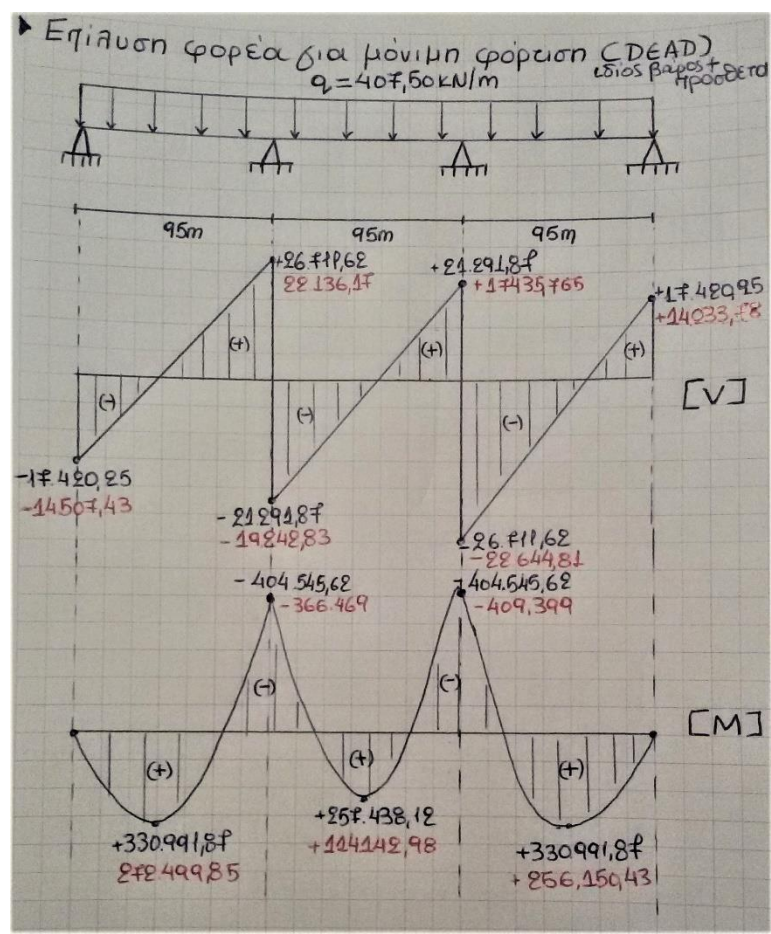 Επίλυση φορέα για μόνιμη φόρτιση (DEAD)
ιδίος βάρος + πρόσθετα
q=407,50KN/m
95m 95m 95m
+26.711,62
22136,17
+21.291,87
+17435,765
+17.420,25
+14033,78
(+) (+) (+)
(-) (-) (-)
[V]
-17.420,25
-14507,43
-21291,87
-19242,83
-26.711,62
-22644,81
-404.545,62
-366.469
-404.545,62
-409,399
(-) (-)
[M]
(+) (+) (+)
+330.991,87
272.499,85
+257.438,12
+114142,98
+330.991,87
+256,150,43